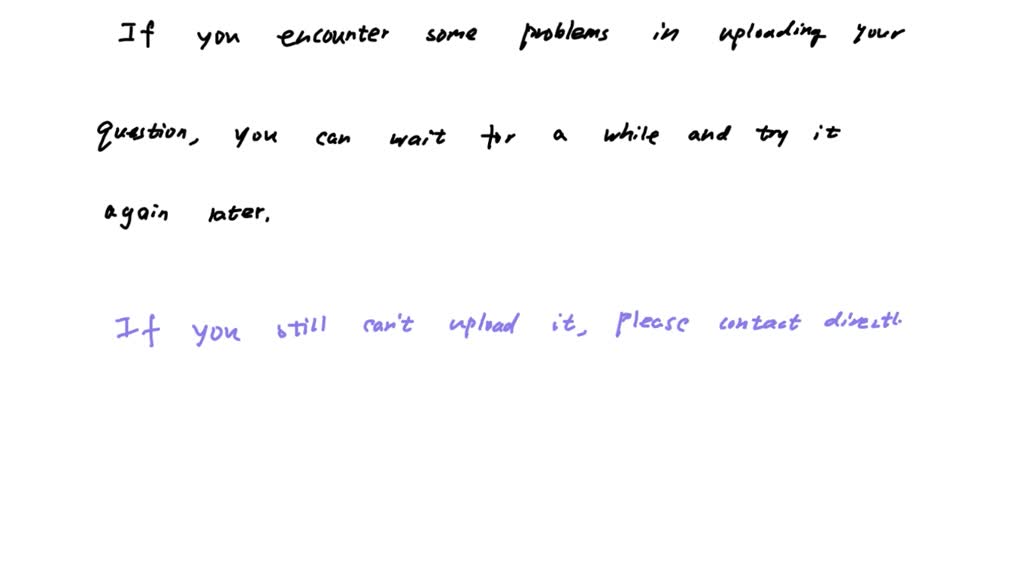 If you encounter some problems in uploading your
question, you can wait for a while and try it
again later.
If you still can't upload it, please contact